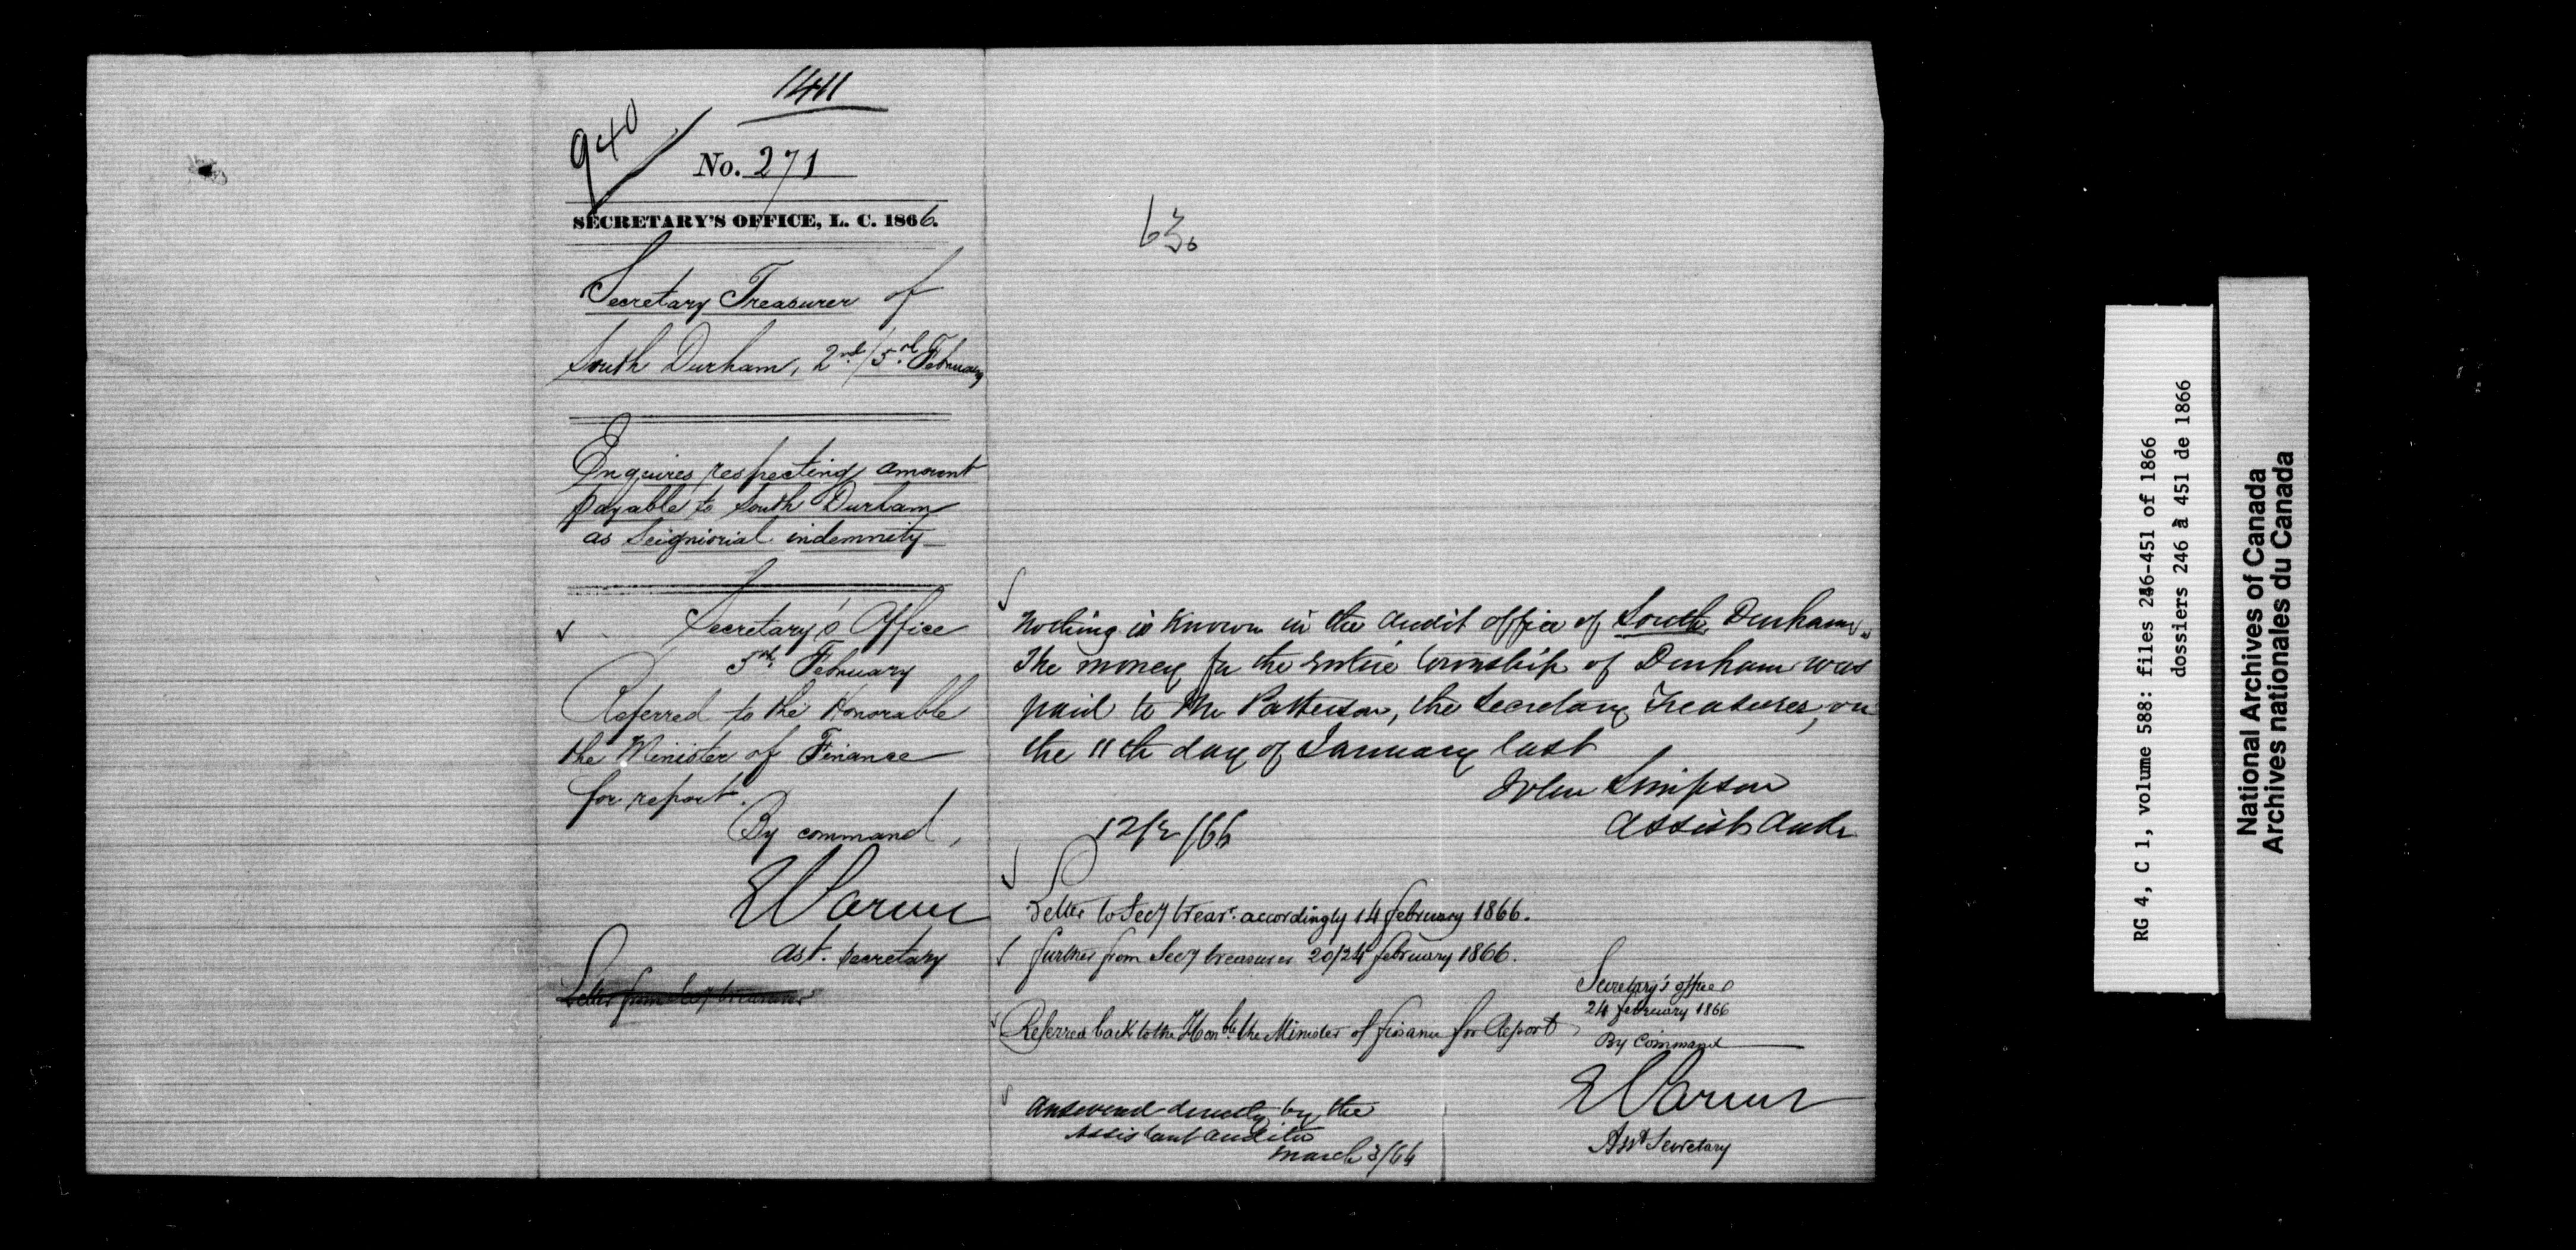 1411
940
No. 271
SECRETARY'S OFFICE, L. C. 1866.
Secretary Treasurer of
South Durham, 2nd/5th February
Enquires respecting amount
payable to South Durham
as Seigniorial indemnity
Secretary's Office
5th February
Referred to the Honorable
the Minister of Finance
for report.
By command,
ast. Secretary
Letter from Secy treasurer
630
Nothing is Known in the Audit office of South Durham.
The money for the entire township of Durham was
paid to Mr Patterson, the Secretary Treasurer, on
the 11th day of January last
John Simpson
Assist Audr
12/2/66
Letter to Secy trears. accordingly 14 february 1866.
further from Secy treasurer 20/24 february 1866.
Secretary's office
24 february 1866
Referred back to the Honble the Minister of finance for Report
By Command
Asst Secretary
Answered directly by the
Assistant Auditor
March 3/66
RG 4, C 1, volume 588: files 246-451 of 1866
dossiers 246 à 451 de 1866
National Archives of Canada
Archives nationales du Canada